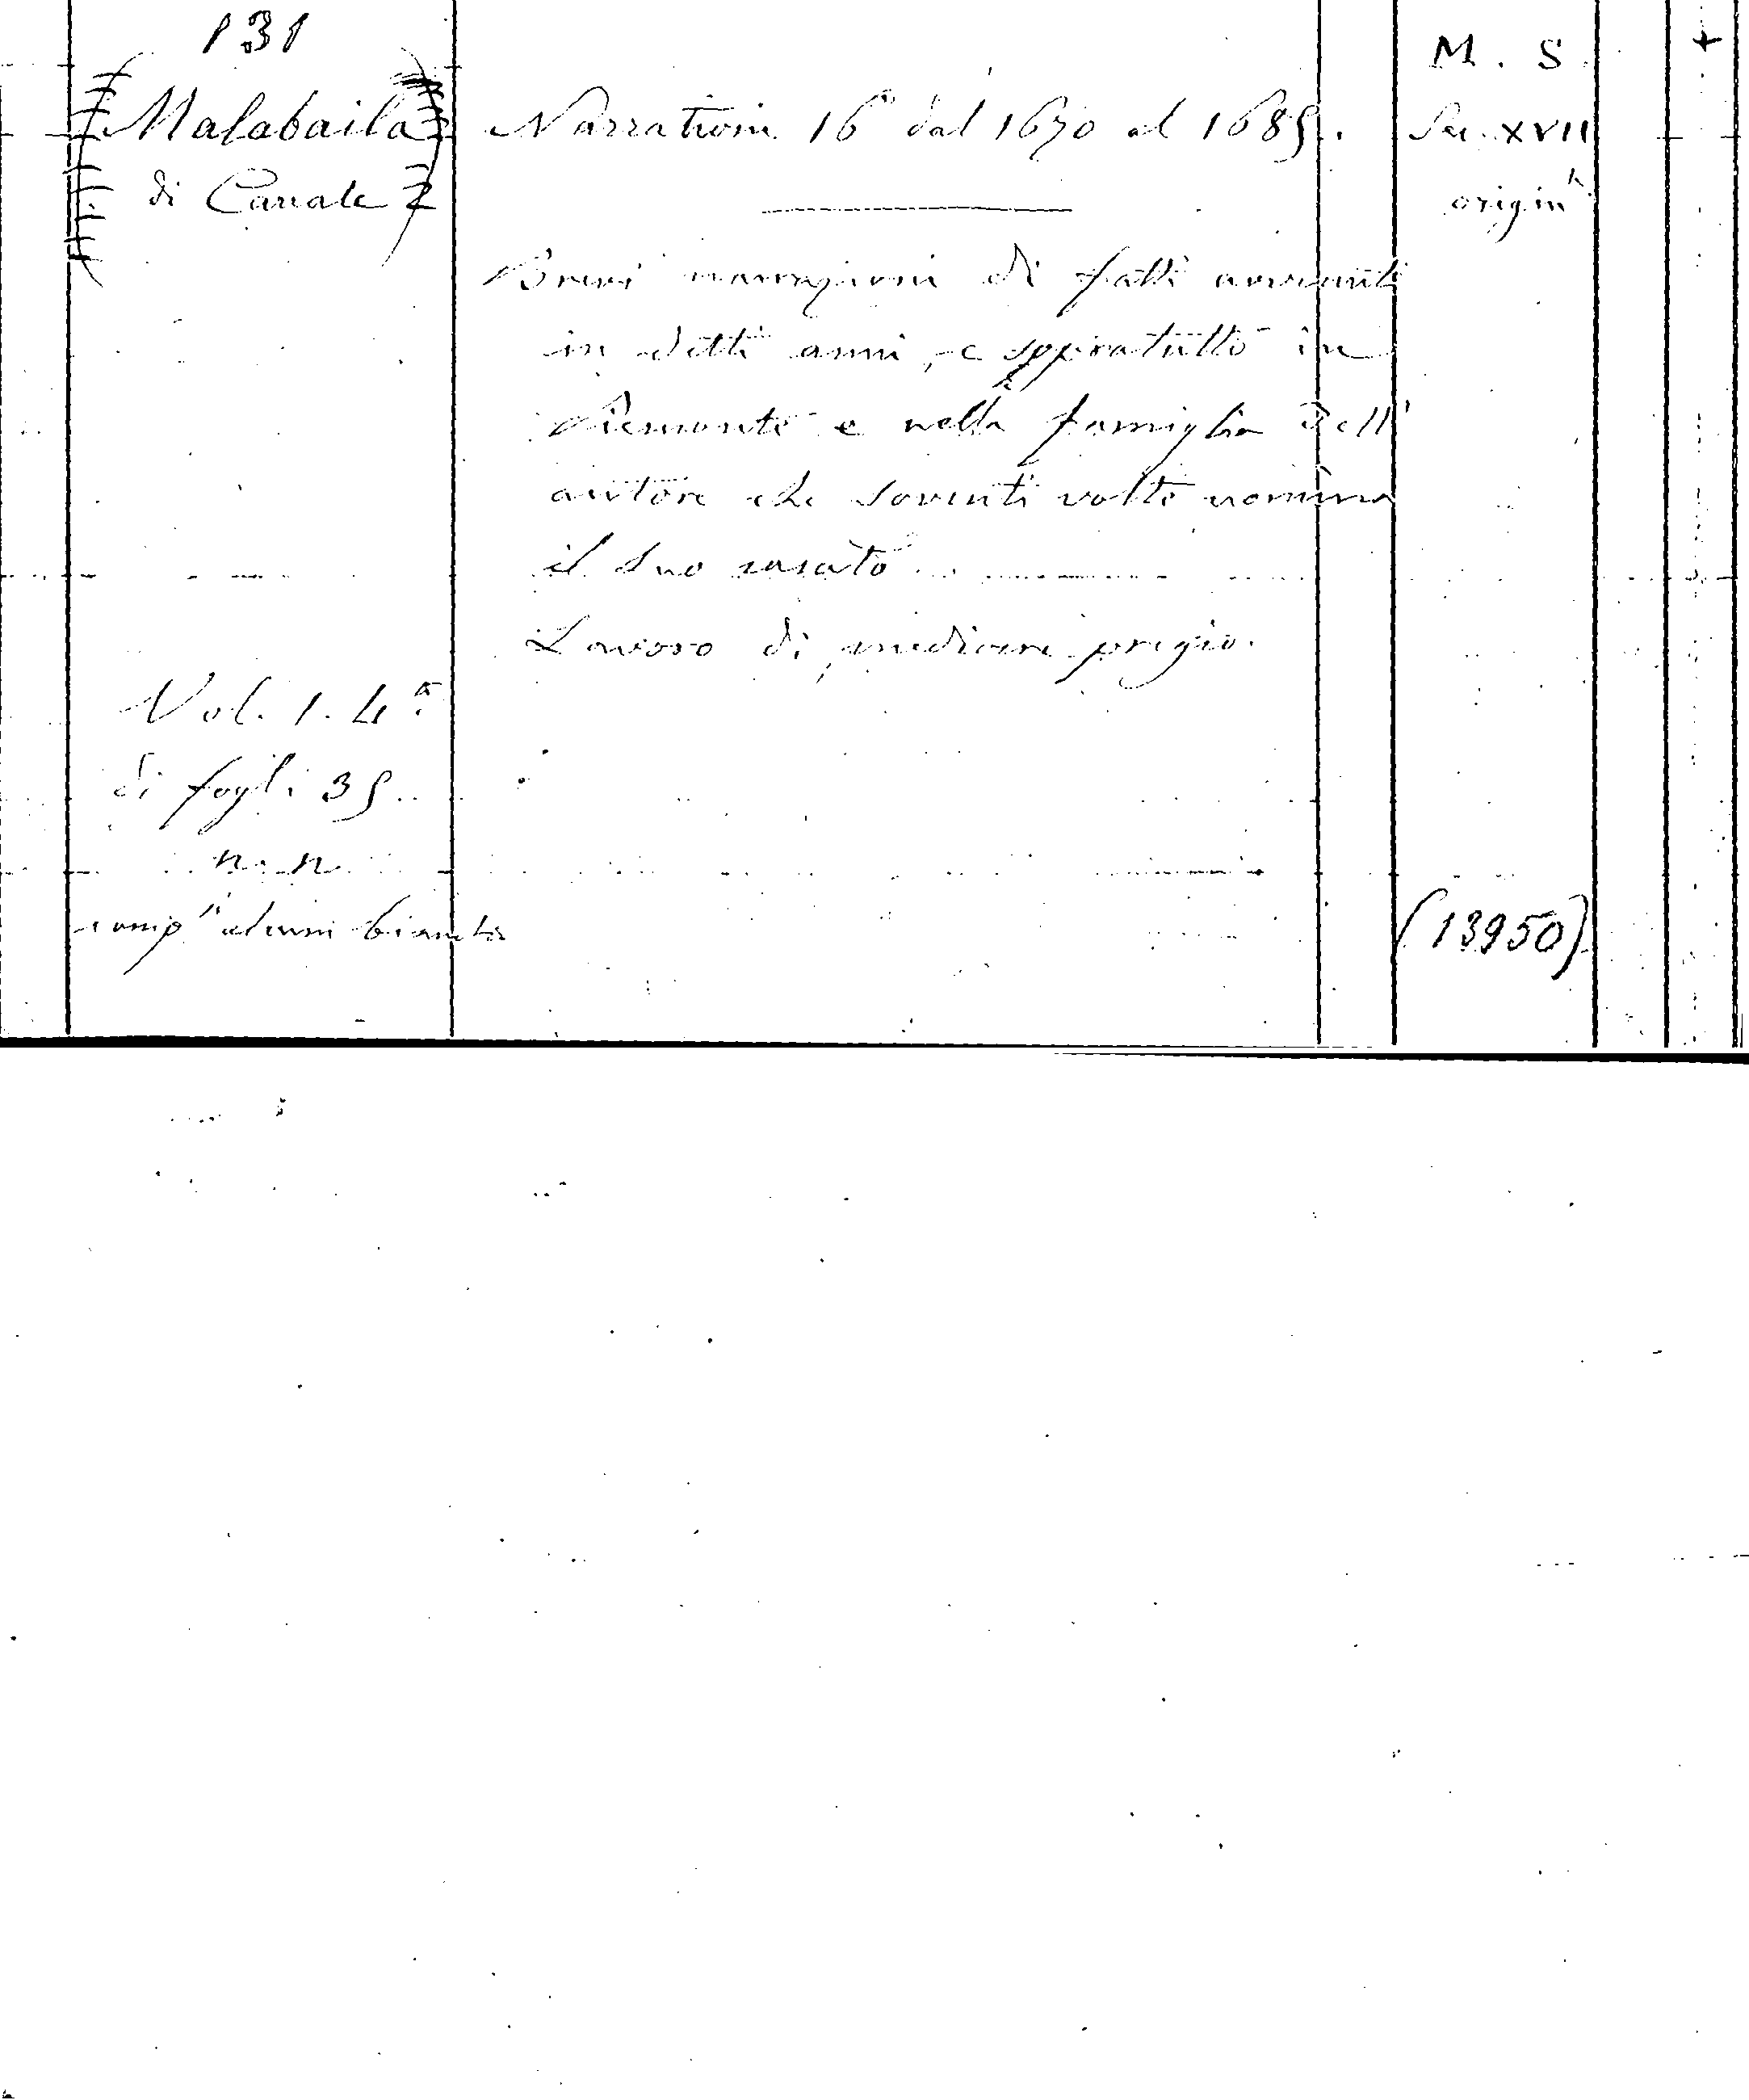 131
Malabaila
di Canale
Narrationi 16 dal 1670 al 1685.
M. S.
Sec. XVII
origin
+
Brevi narrazioni di fatti avvenuti
in detti anni, e sopratutto in
Piemonte e nella famiglia dell'
autore che soventi volte nomina
il suo casato
Lavoro di mediocre pregio.
Vol. 1. 4º
di fogli 35.
n. n.
alcuni bianchi
(13950)